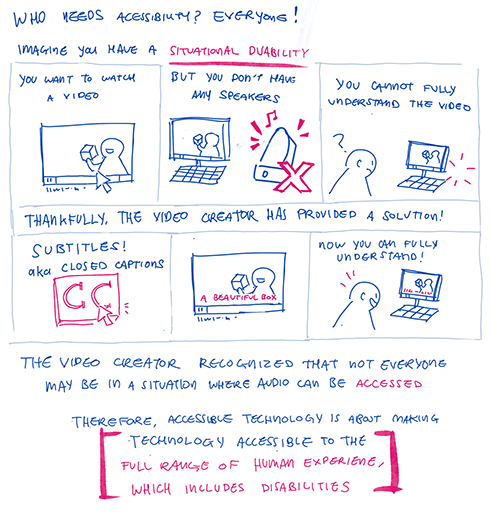 WHO NEEDS ACESSIBILITY? EVERYONE!
IMAGINE YOU HAVE A SITUATIONAL DISABILITY
YOU WANT TO WATCH
A VIDEO
BUT YOU DON'T HAVE
ANY SPEAKERS
YOU CANNOT FULLY
UNDERSTAND THE VIDEO
?
THANKFULLY, THE VIDEO CREATOR HAS PROVIDED A SOLUTION!
SUBTITLES!
aka CLOSED CAPTIONS
CC
A BEAUTIFUL BOX
NOW YOU CAN FULLY
UNDERSTAND!
THE VIDEO CREATOR RECOGNIZED THAT NOT EVERYONE
MAY BE IN A SITUATION WHERE AUDIO CAN BE ACCESSED
THEREFORE, ACCESSIBLE TECHNOLOGY IS ABOUT MAKING
TECHNOLOGY ACCESSIBLE TO THE
FULL RANGE OF HUMAN EXPERIENE,
WHICH INCLUDES DISABILITIES